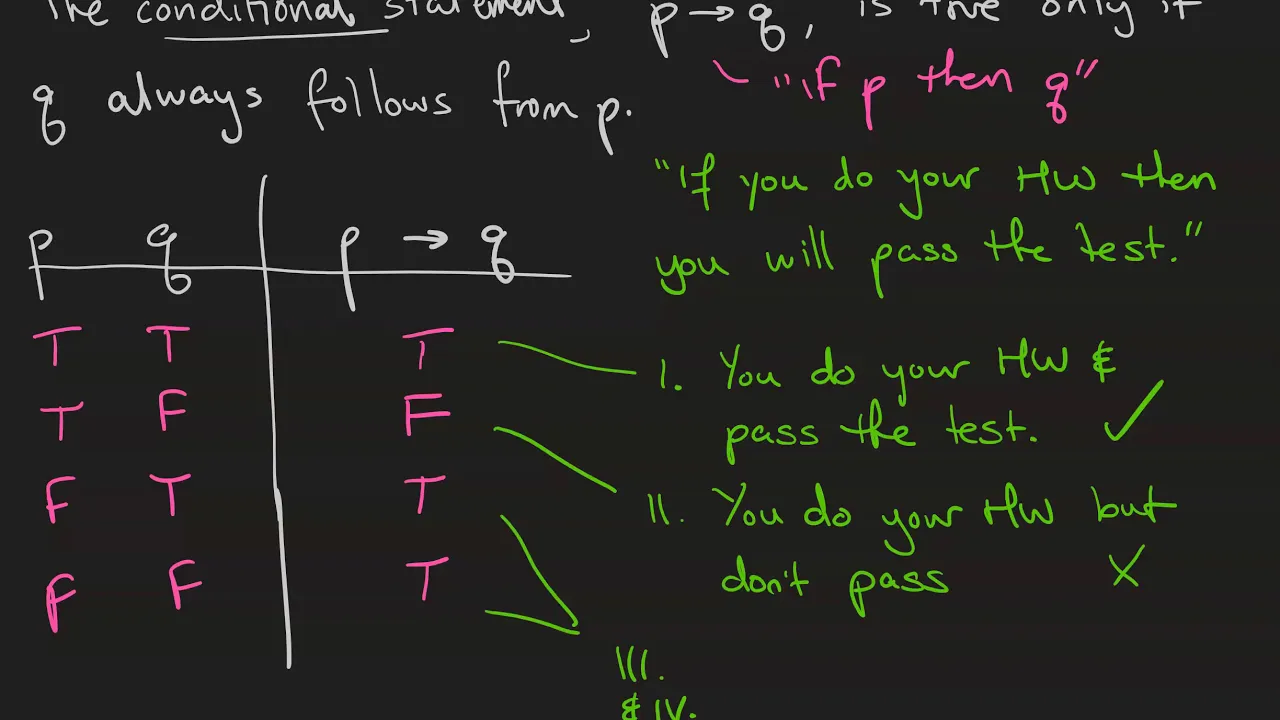 The conditional statement, p → q, is true only if
"if p then q"
q always follows from p.
"If you do your HW then
you will pass the test."
p q p → q
T T T
T F F
F T T
F F T
I. You do your HW &
pass the test. ✓
II. You do your HW but
don't pass X
III.
& IV.